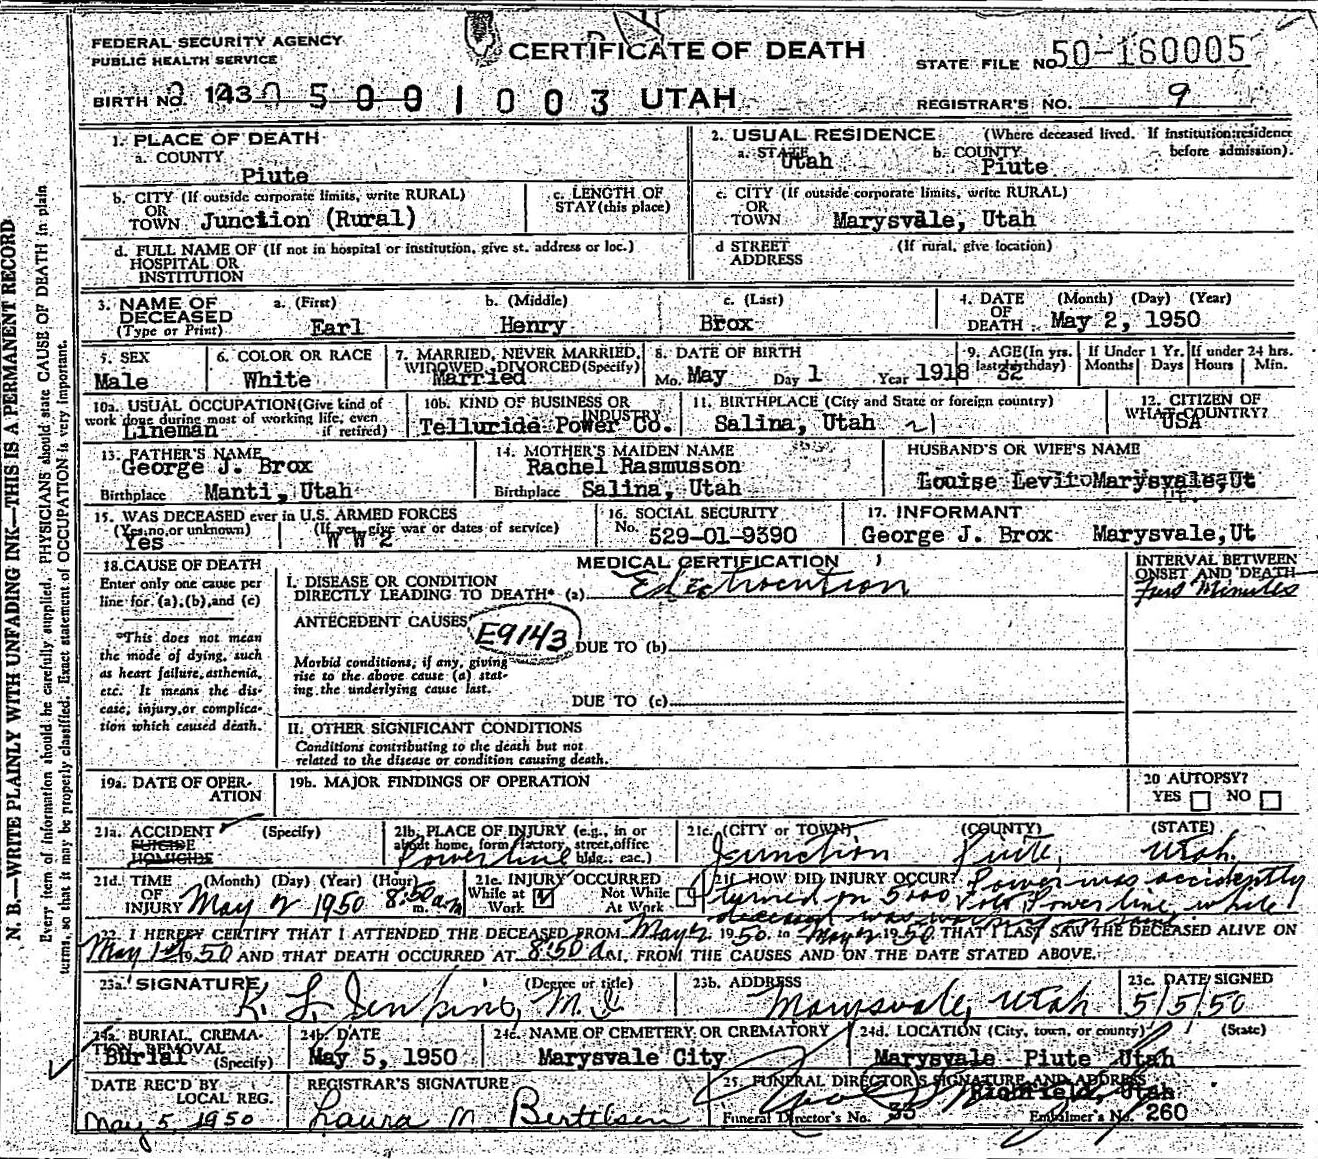 FEDERAL SECURITY AGENCY
PUBLIC HEALTH SERVICE
CERTIFICATE OF DEATH
STATE FILE NO. 50-160005
BIRTH NO. 143 0 5 0 0 1 0 0 3 UTAH
REGISTRAR'S NO. 9
1. PLACE OF DEATH
a. COUNTY
Piute
2. USUAL RESIDENCE (Where deceased lived. If institution: residence before admission).
a. STATE Utah b. COUNTY Piute
b. CITY (If outside corporate limits, write RURAL)
OR
TOWN Junction (Rural)
c. LENGTH OF
STAY (this place)
c. CITY (If outside corporate limits, write RURAL)
OR
TOWN Marysvale, Utah
d. FULL NAME OF (If not in hospital or institution, give st. address or loc.)
HOSPITAL OR
INSTITUTION
d STREET (If rural, give location)
ADDRESS
3. NAME OF DECEASED (Type or Print)
a. (First) b. (Middle) c. (Last)
Earl Henry Brox
4. DATE OF DEATH (Month) (Day) (Year)
May 2, 1950
5. SEX
Male
6. COLOR OR RACE
White
7. MARRIED, NEVER MARRIED,
WIDOWED, DIVORCED (Specify)
Married
8. DATE OF BIRTH
Mo. May Day 1 Year 1918
9. AGE (In yrs. last birthday)
32
If Under 1 Yr.
Months Days
If under 24 hrs.
Hours Min.
10a. USUAL OCCUPATION (Give kind of
work done during most of working life, even
if retired)
Lineman
10b. KIND OF BUSINESS OR
INDUSTRY
Telluride Power Co.
11. BIRTHPLACE (City and State or foreign country)
Salina, Utah
12. CITIZEN OF
WHAT COUNTRY?
USA
13. FATHER'S NAME
George J. Brox
Birthplace Manti, Utah
14. MOTHER'S MAIDEN NAME
Rachel Rasmusson
Birthplace Salina, Utah
HUSBAND'S OR WIFE'S NAME
Louise Levi Marysvale, Ut
15. WAS DECEASED ever in U.S. ARMED FORCES
(Yes, no, or unknown) (If yes, give war or dates of service)
Yes W W 2
16. SOCIAL SECURITY
No. 529-01-9390
17. INFORMANT
George J. Brox Marysvale, Ut
18. CAUSE OF DEATH
Enter only one cause per
line for (a), (b), and (c)
*This does not mean
the mode of dying, such
as heart failure, asthenia,
etc. It means the dis-
case, injury, or complica-
tion which caused death.
MEDICAL CERTIFICATION
I. DISEASE OR CONDITION
DIRECTLY LEADING TO DEATH* (a) Electrocution
INTERVAL BETWEEN
ONSET AND DEATH
Minutes
ANTECEDENT CAUSES
E9143
DUE TO (b)
Morbid conditions, if any, giving
rise to the above cause (a) stat-
ing the underlying cause last.
DUE TO (c)
II. OTHER SIGNIFICANT CONDITIONS
Conditions contributing to the death but not
related to the disease or condition causing death.
19a. DATE OF OPER-
ATION
19b. MAJOR FINDINGS OF OPERATION
20 AUTOPSY?
YES NO
21a. ACCIDENT (Specify)
SUICIDE
HOMICIDE
21b. PLACE OF INJURY (e.g., in or
about home, form, factory, street, office
bldg., eac.)
Powerline
21c. (CITY or TOWN) (COUNTY) (STATE)
Junction Piute, Utah.
21d. TIME (Month) (Day) (Year) (Hour)
OF
INJURY May 2 1950 8:50 a.m
21e. INJURY OCCURRED
While at Work Not While At Work
21f. HOW DID INJURY OCCUR? Power was accidently
turned on 5000 Volt Powerline while
deceased was working on same.
22. I HEREBY CERTIFY THAT I ATTENDED THE DECEASED FROM May 2 1950 to May 2 1950 THAT I LAST SAW THE DECEASED ALIVE ON
May 1st 1950 AND THAT DEATH OCCURRED AT 8:50 a.m. FROM THE CAUSES AND ON THE DATE STATED ABOVE.
23a. SIGNATURE (Degree or title)
K. L. Jenkins, M.D
23b. ADDRESS
Marysvale, Utah
23c. DATE SIGNED
5/5/50
24a. BURIAL, CREMA-
TION REMOVAL (Specify)
Burial
24b. DATE
May 5, 1950
24c. NAME OF CEMETERY OR CREMATORY
Marysvale City
24d. LOCATION (City, town, or county) (State)
Marysvale Piute Utah
DATE REC'D BY
LOCAL REG.
May 5, 1950
REGISTRAR'S SIGNATURE
Laura M Bertelsen
25. FUNERAL DIRECTOR'S SIGNATURE AND ADDRESS
Richfield, Utah
Funeral Director's No. 35 Embalmer's No. 260
N. B.—WRITE PLAINLY WITH UNFADING INK—THIS IS A PERMANENT RECORD
Every item of information should be carefully supplied. PHYSICIANS should state CAUSE OF DEATH in plain
terms, so that it may be properly classified. Exact statement of OCCUPATION is very important.